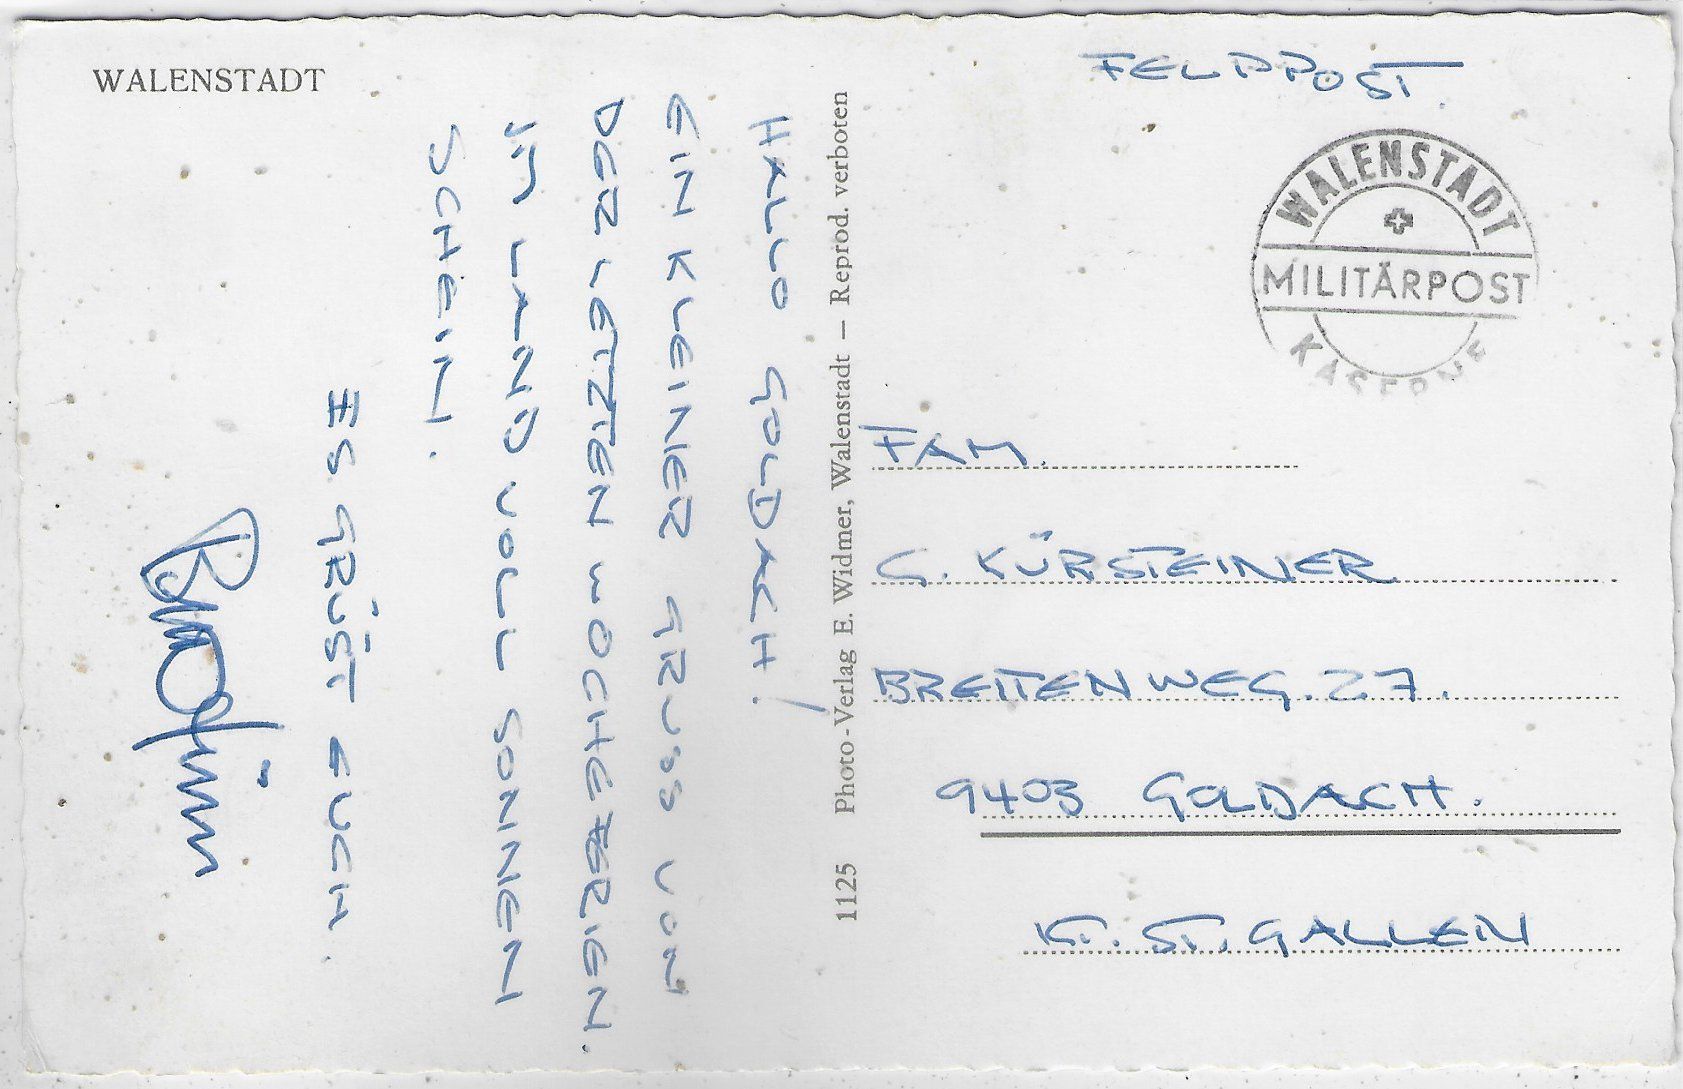 WALENSTADT
HALLO GOLDACH!
EIN KLEINER GRUSS VON
DER LETZTEN WOCHE FERIEN.
IM LAND VOLL SONNEN
SCHEIN.
ES GRÜST EUCH.
1125 Photo-Verlag E. Widmer, Walenstadt — Reprod. verboten
FELDPOST.
WALENSTADT
MILITÄRPOST
KASERNE
FAM.
G. KÜRSTEINER
BREITENWEG. 27.
9403 GOLDACH.
KT. ST. GALLEN